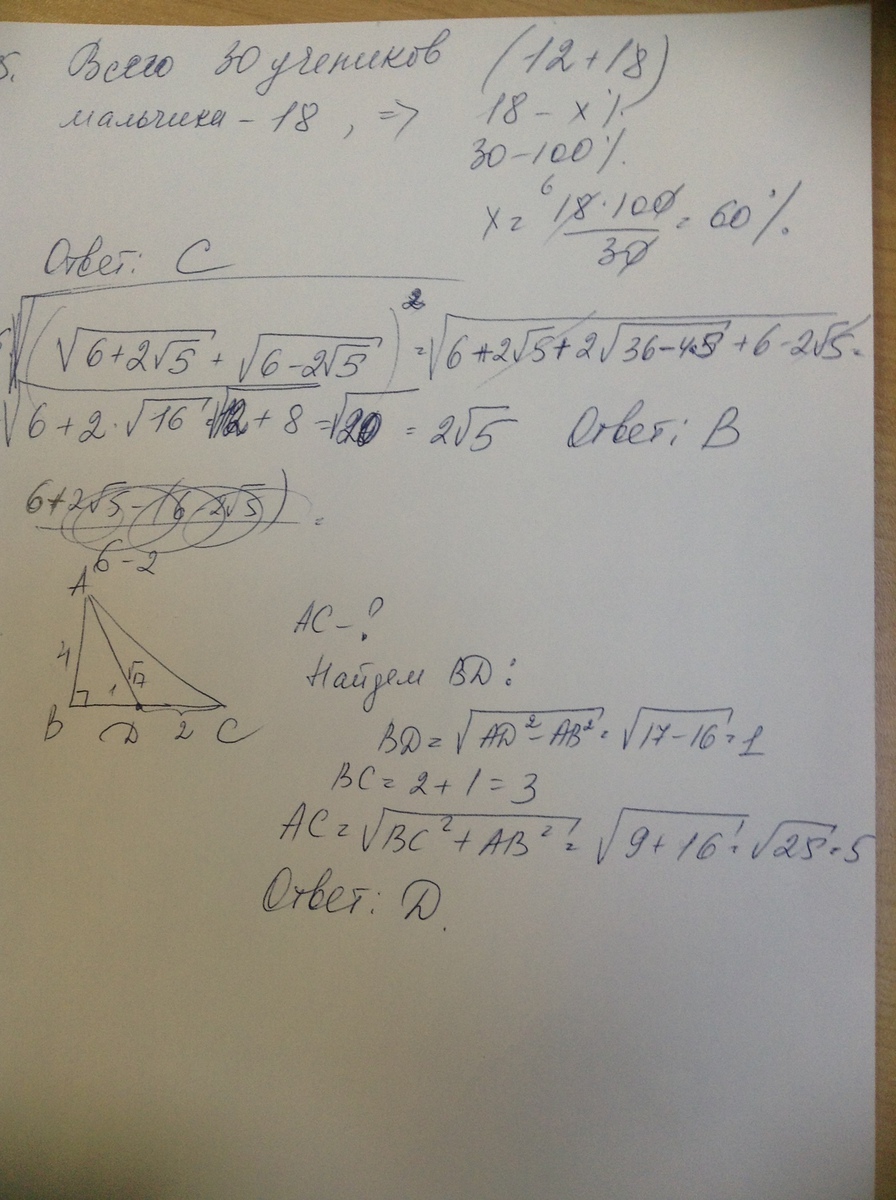 5. Всего 30 учеников (12+18)
мальчика - 18, => 18 - x%
30 - 100%
x = 18·100/30 = 60%
6
Ответ: C
√(√(6+2√5) + √(6-2√5))² = √(6+2√5+2√(36-4·5)+6-2√5) =
√(6+2·√16 = √(12+8) = √20 = 2√5 Ответ: B
6+2√5-(6-2√5) =
6-2
A
4 √17 1
B D 2 C
AC - ?
Найдем BD:
BD = √(AD²-AB²) = √(17-16) = 1
BC = 2+1 = 3
AC = √(BC²+AB²) = √(9+16) = √25 = 5
Ответ: D.